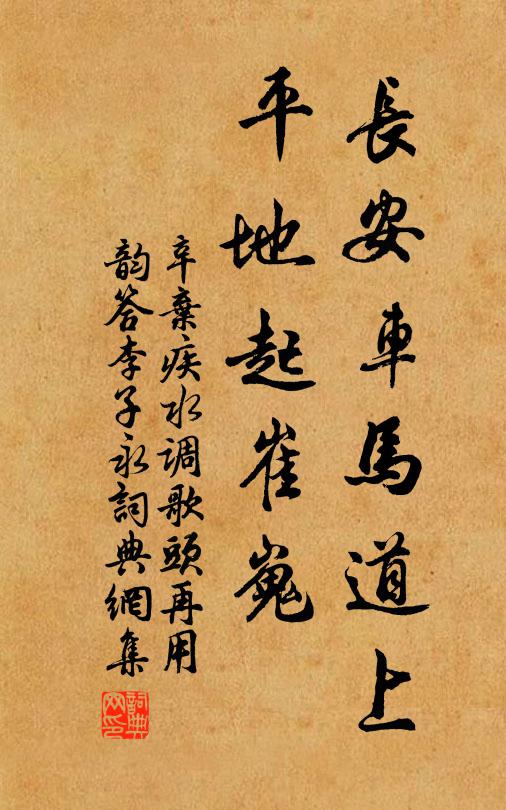 長安車馬道上
平地起崔嵬
辛棄疾水调歌頭再用
韵答李子永詞典網集
詞典网印